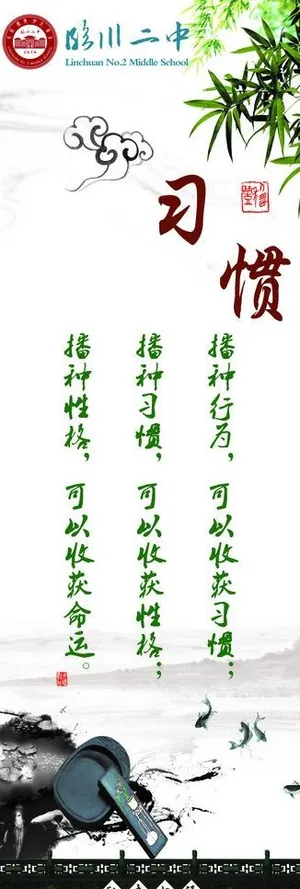 临川二中
Linchuan No.2 Middle School
习惯
播种行为，可以收获习惯；
播种习惯，可以收获性格；
播种性格，可以收获命运。